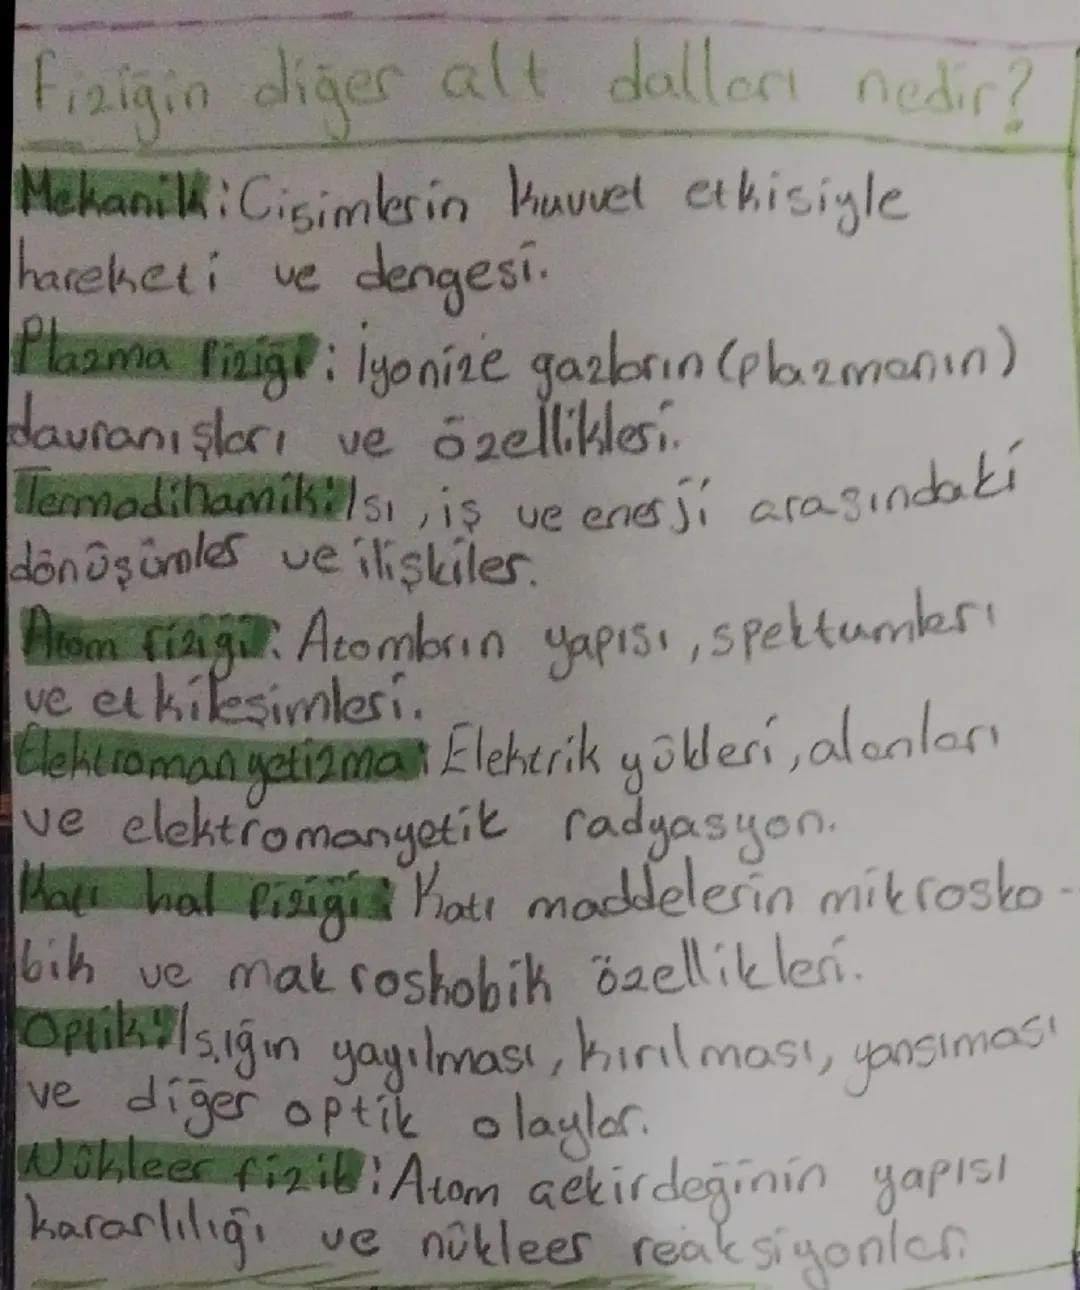 Fiziğin diğer alt dalları nedir?
Mekanik: Cisimlerin kuvvet etkisiyle
hareketi ve dengesi.
Plazma fiziği: İyonize gazların (plazmanın)
davranışları ve özellikleri.
Termodinamik: Isı, iş ve enerji arasındaki
dönüşümler ve ilişkiler.
Atom fiziği: Atomların yapısı, spektumları
ve etkileşimleri.
Elektromanyetizma: Elektrik yükleri, alanları
ve elektromanyetik radyasyon.
Katı hal fiziği: Katı maddelerin mikrosko-
bik ve makroskobik özellikleri.
Optik: Işığın yayılması, kırılması, yansıması
ve diğer optik olaylar.
Nükleer fizik: Atom çekirdeğinin yapısı
kararlılığı ve nükleer reaksiyonlar.